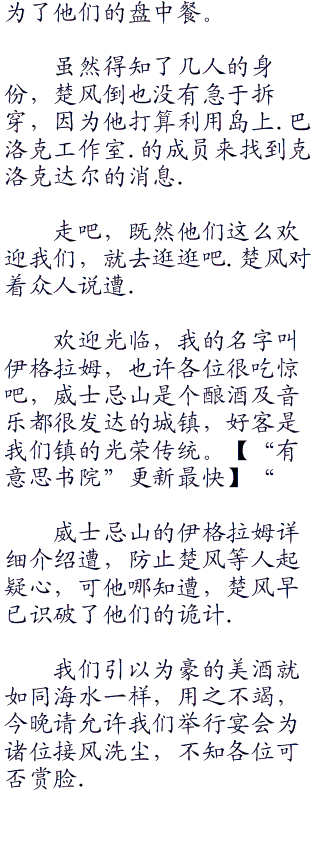 为了他们的盘中餐。
虽然得知了几人的身
份，楚风倒也没有急于拆
穿，因为他打算利用岛上.巴
洛克工作室.的成员来找到克
洛克达尔的消息.
走吧，既然他们这么欢
迎我们，就去逛逛吧.楚风对
着众人说遭.
欢迎光临，我的名字叫
伊格拉姆，也许各位很吃惊
吧，威士忌山是个酿酒及音
乐都很发达的城镇，好客是
我们镇的光荣传统。【“有
意思书院”更新最快】“
威士忌山的伊格拉姆详
细介绍遭，防止楚风等人起
疑心，可他哪知遭，楚风早
已识破了他们的诡计.
我们引以为豪的美酒就
如同海水一样，用之不竭，
今晚请允许我们举行宴会为
诸位接风洗尘，不知各位可
否赏脸.